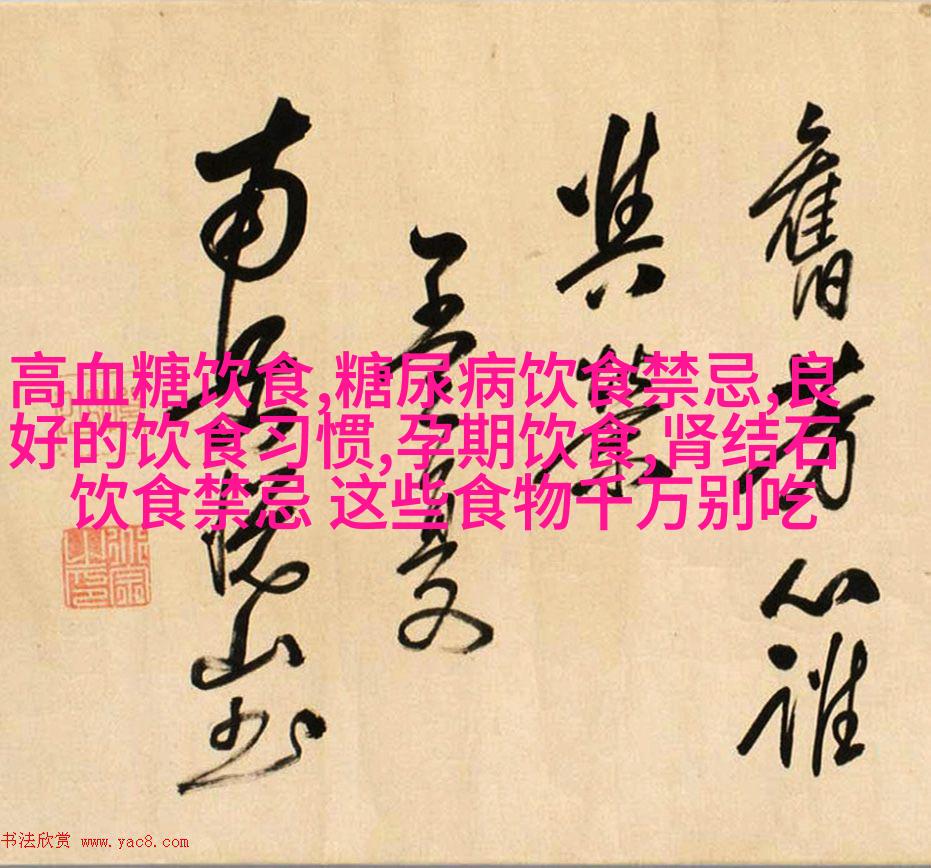 高血糖饮食,糖尿病饮食禁忌,良
好的饮食习惯,孕期饮食,肾结石
饮食禁忌 这些食物千万别吃
舊芳心誰
與
夏
南山书
书法欣赏 www.yac8.com